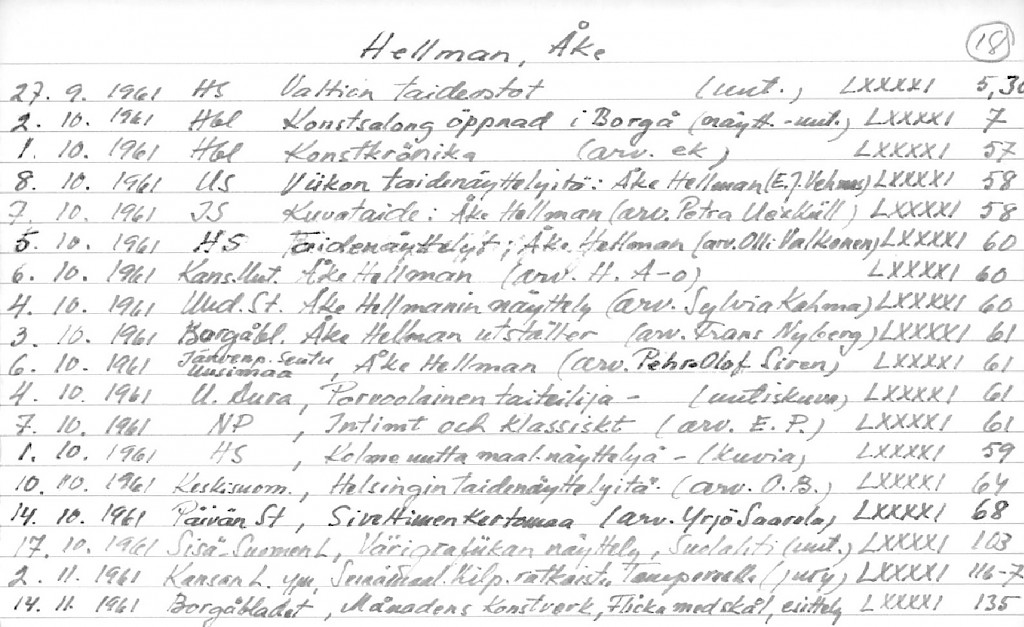 Hellman, Åke 18
27. 9. 1961 HS Valtion taideostot (uut.) LXXXXI 5,30
2. 10. 1961 Hbl Konstsalong öppnad i Borgå (näytt.-uut.) LXXXXI 7
1. 10. 1961 Hbl Konstkrönika (arv. ek) LXXXXI 57
8. 10. 1961 US Viikon taidenäyttelyitä: Åke Hellman (E.J. Vehmas) LXXXXI 58
7. 10. 1961 IS Kuvataide: Åke Hellman (arv. Petra Uexküll) LXXXXI 58
5. 10. 1961 HS Taidenäyttelyt; Åke Hellman (arv. Olli Valkonen) LXXXXI 60
6. 10. 1961 Kans.Uut. Åke Hellman (arv. H. A-o) LXXXXI 60
4. 10. 1961 Uud. St. Åke Hellmanin näyttely (arv. Sylvia Kahma) LXXXXI 60
3. 10. 1961 Borgåbl. Åke Hellman utställer (arv. Frans Nyberg) LXXXXI 61
6. 10. 1961 Järvenp. Seutu Uusimaa, Åke Hellman (arv. Pehr-Olof Siren) LXXXXI 61
4. 10. 1961 U. Aura, Porvoolainen taiteilija - (uutiskuva) LXXXXI 61
7. 10. 1961 NP, Intimt och klassiskt (arv. E. P.) LXXXXI 61
1. 10. 1961 HS, Kolme uutta maal.näyttelyä - (kuvia) LXXXXI 59
10. 10. 1961 Keskisuom., Helsingin taidenäyttelyitä. (arv. O.B.) LXXXXI 64
14. 10. 1961 Päivän St, Sivettimen kertomaa (arv. Yrjö Saarela) LXXXXI 68
17. 10. 1961 Sisä-Suomen L, Värigrafiikan näyttely, Suolahti (uut.) LXXXXI 103
2. 11. 1961 Kansan L. ym, Seinämaal.kilp. ratkaistu Tampereella (jury) LXXXXI 116-7
14. 11. 1961 Borgåbladet, Månadens konstverk, Flicka med skål, esittely LXXXXI 135